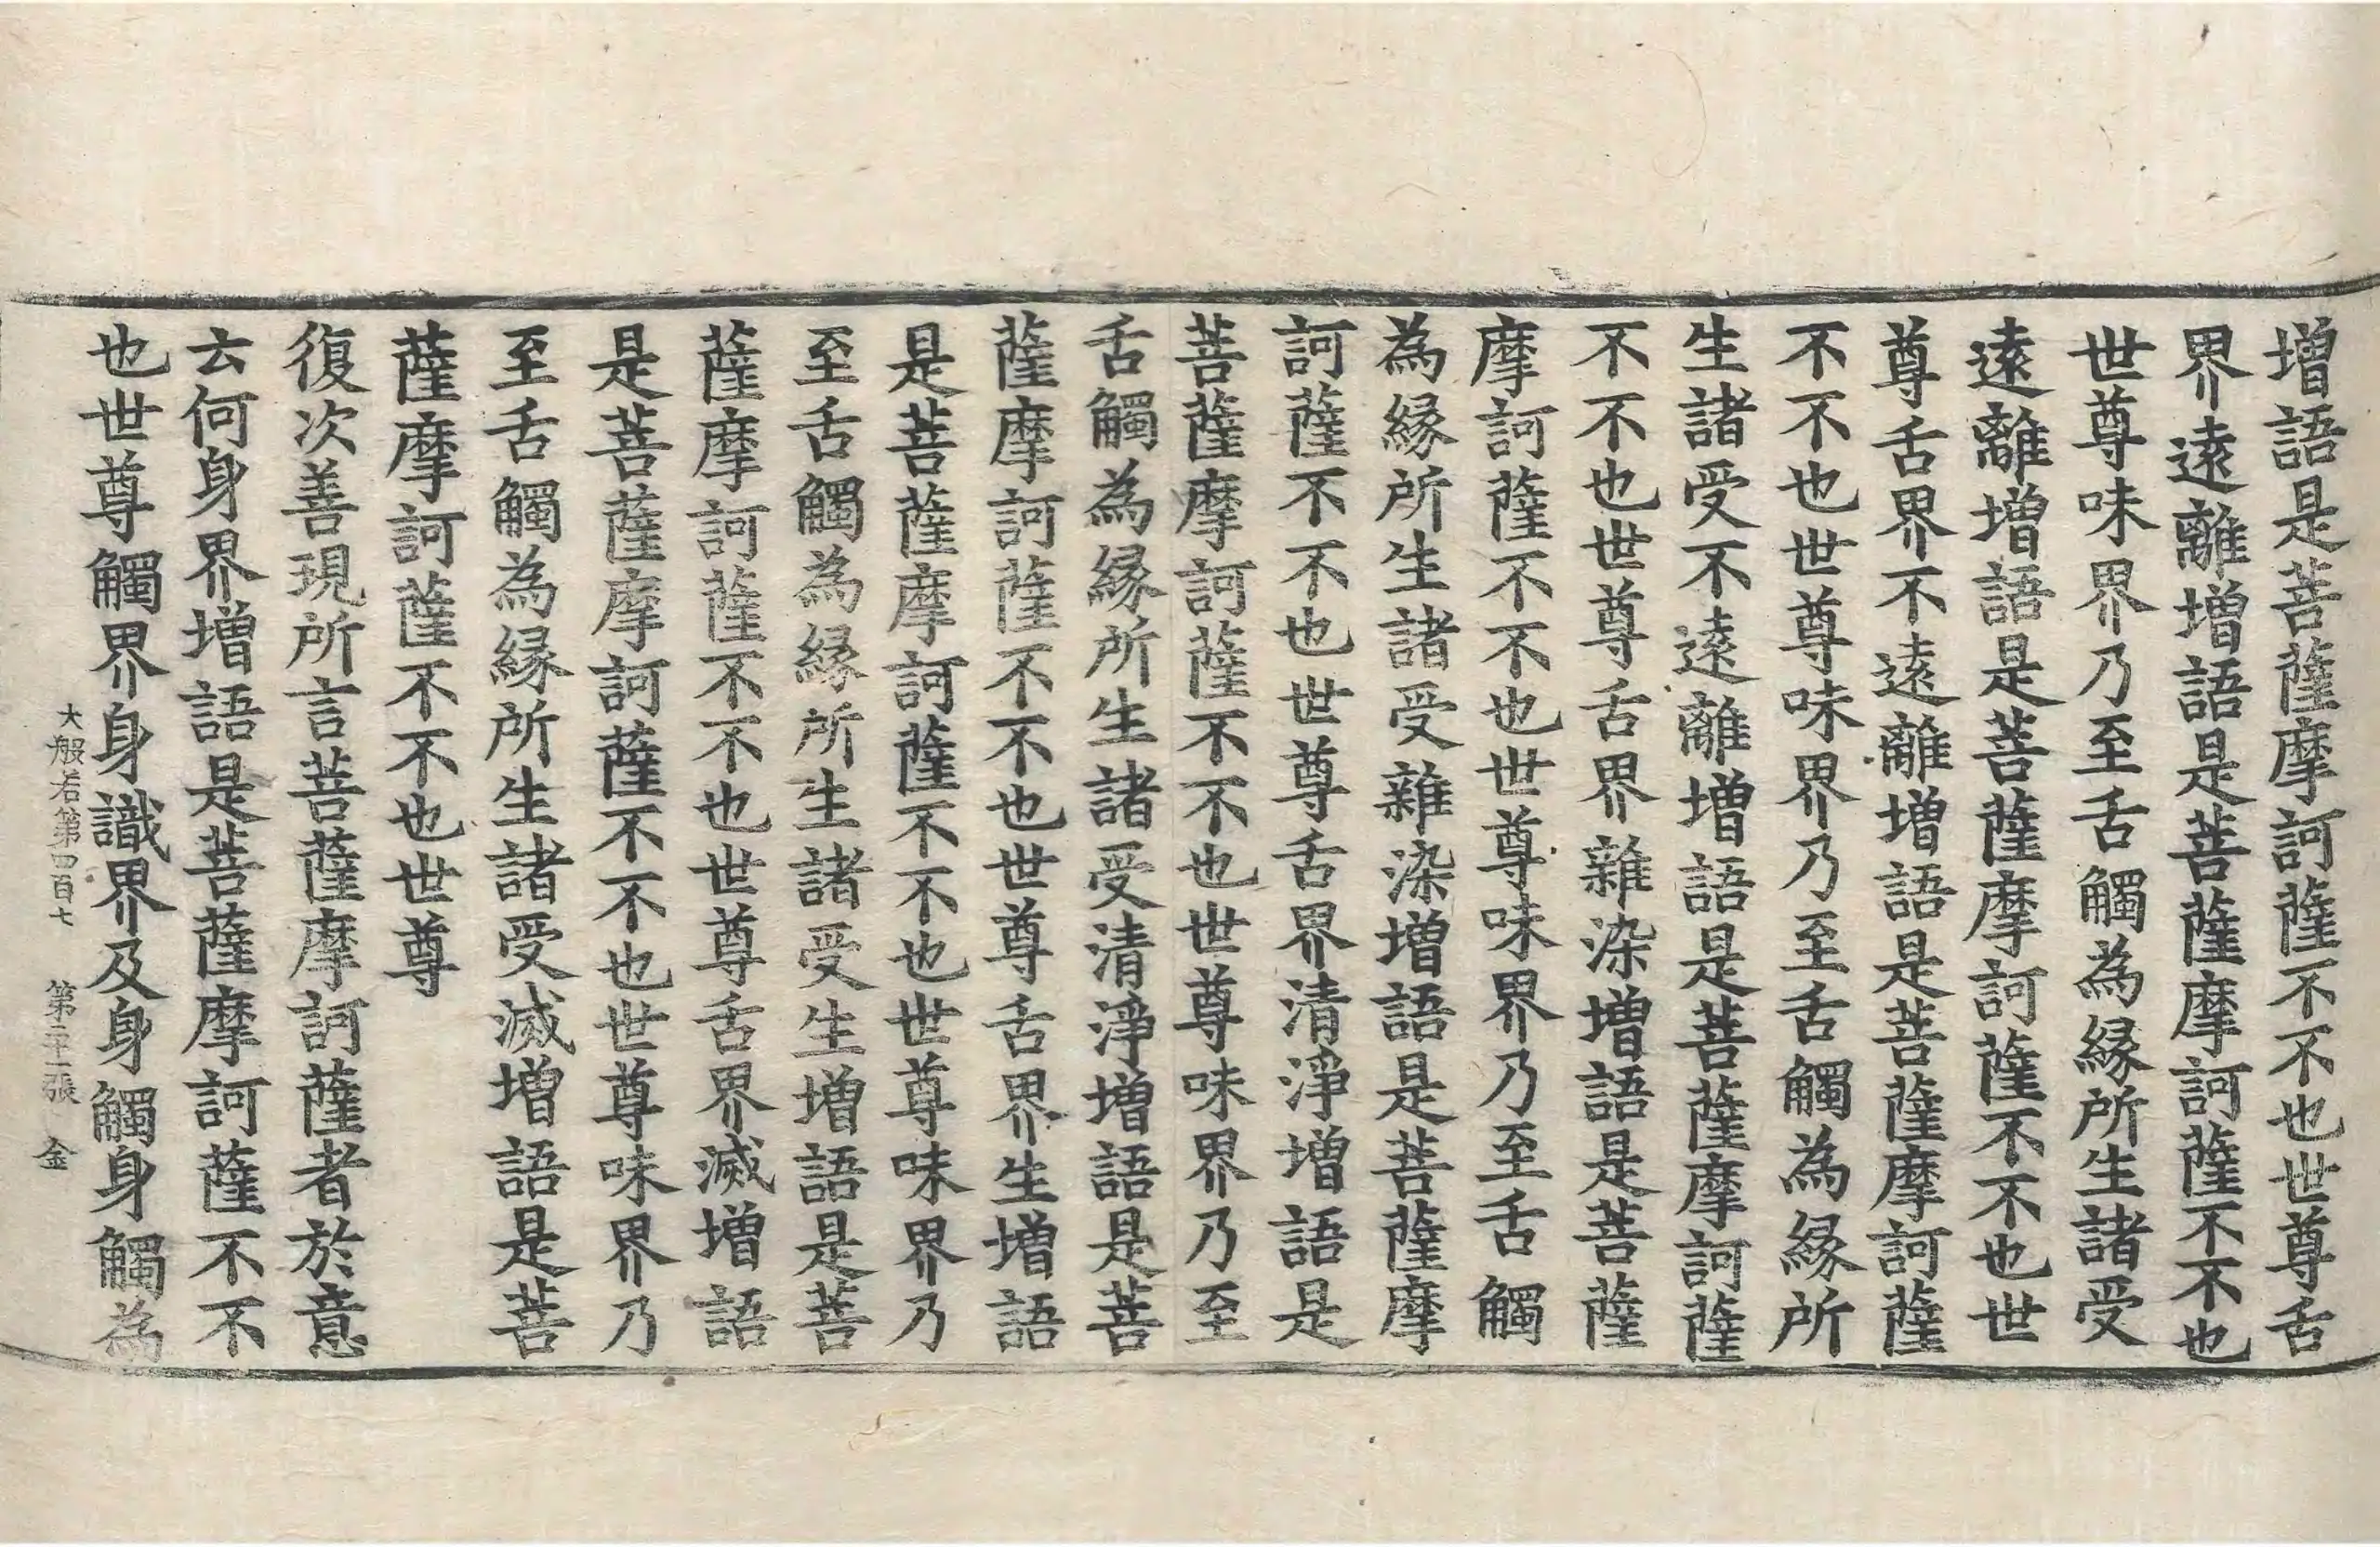 増語是菩薩摩訶薩不不也世尊舌
界遠離増語是菩薩摩訶薩不不也
世尊味界乃至舌觸為緣所生諸受
遠離増語是菩薩摩訶薩不不也世
尊舌界不遠離増語是菩薩摩訶薩
不不也世尊味界乃至舌觸為緣所
生諸受不遠離増語是菩薩摩訶薩
不不也世尊舌界雜染増語是菩薩
摩訶薩不不也世尊味界乃至舌觸
為緣所生諸受雜染増語是菩薩摩
訶薩不不也世尊舌界清淨増語是
菩薩摩訶薩不不也世尊味界乃至
舌觸為緣所生諸受清淨増語是菩
薩摩訶薩不不也世尊舌界生増語
是菩薩摩訶薩不不也世尊味界乃
至舌觸為緣所生諸受生増語是菩
薩摩訶薩不不也世尊舌界滅増語
是菩薩摩訶薩不不也世尊味界乃
至舌觸為緣所生諸受滅増語是菩
薩摩訶薩不不也世尊
復次善現所言菩薩摩訶薩者於意
云何身界増語是菩薩摩訶薩不不
也世尊觸界身識界及身觸身觸為
大般若第四百七 第二十一張 金